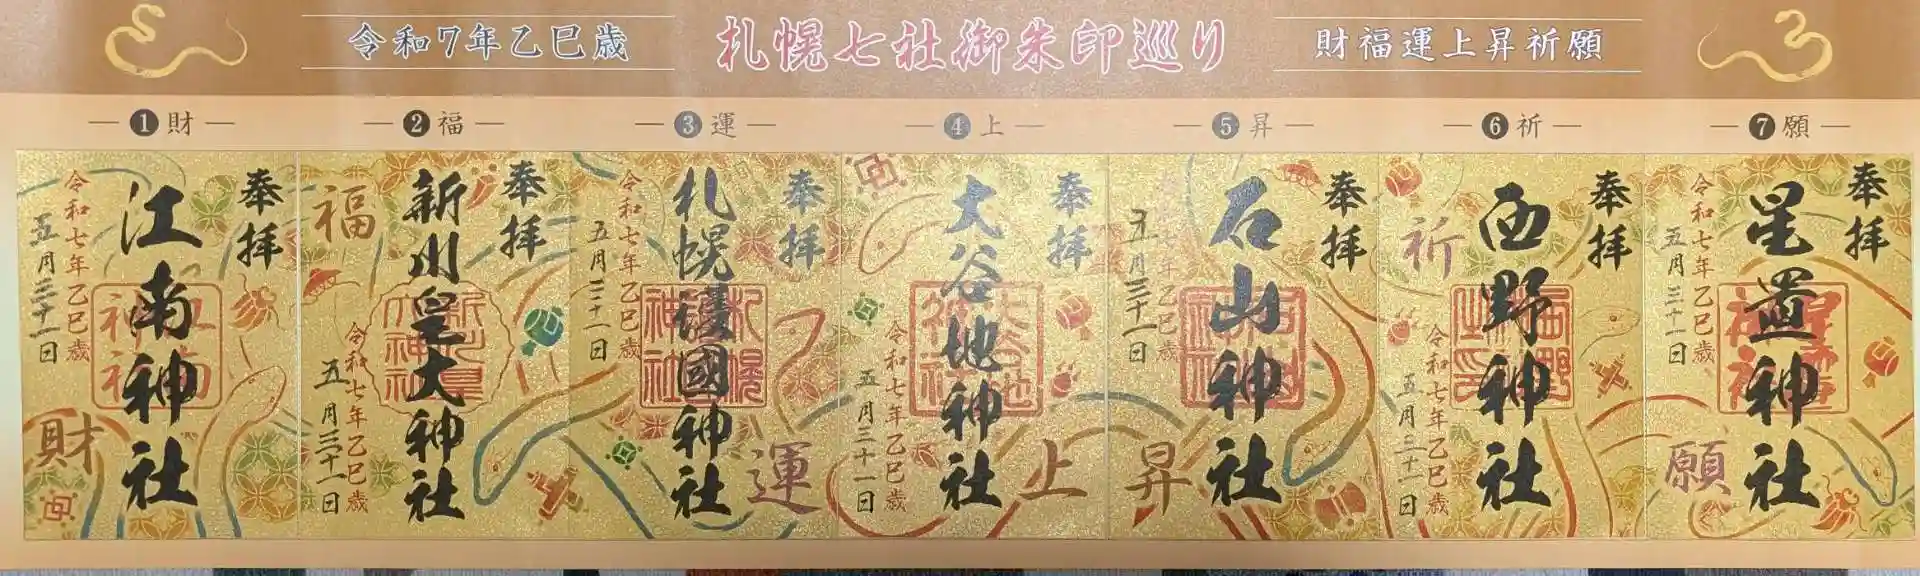 令和7年乙巳歳
札幌七社御朱印巡り
財福運上昇祈願
1 財
2 福
3 運
4 上
5 昇
6 祈
7 願
奉拝
江南神社
令和七年乙巳歳
五月三十一日
財
奉拝
福
新川皇大神社
令和七年乙巳歳
五月三十一日
奉拝
札幌護國神社
令和七年乙巳歳
五月三十一日
運
奉拝
大谷地神社
令和七年乙巳歳
五月三十一日
上
奉拝
石山神社
令和七年乙巳歳
五月三十一日
昇
奉拝
祈
西野神社
令和七年乙巳歳
五月三十一日
奉拝
星置神社
令和七年乙巳歳
五月三十一日
願